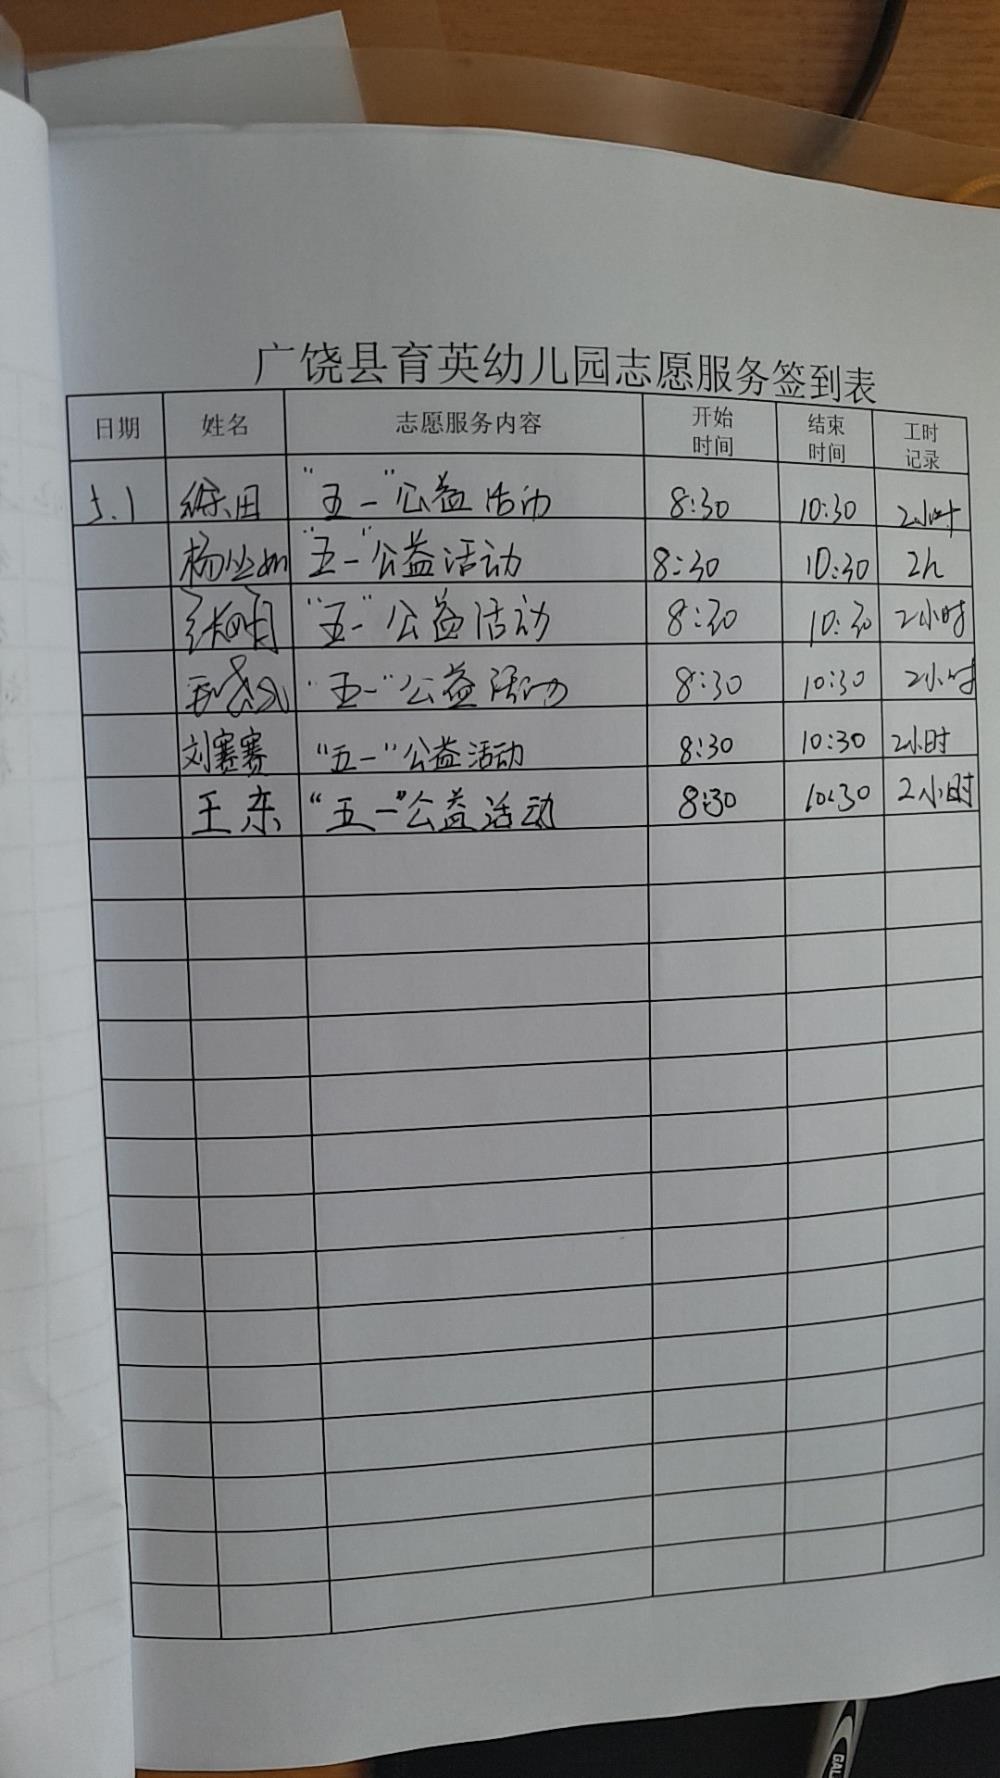 广饶县育英幼儿园志愿服务签到表
日期 姓名 志愿服务内容 开始时间 结束时间 工时记录
5.1 "五一"公益活动 8:30 10:30 2小时
杨 "五一"公益活动 8:30 10:30 2h
"五一"公益活动 8:30 10:30 2小时
"五一"公益活动 8:30 10:30 2小时
刘赛赛 "五一"公益活动 8:30 10:30 2小时
王东 "五一"公益活动 8:30 10:30 2小时
GAL